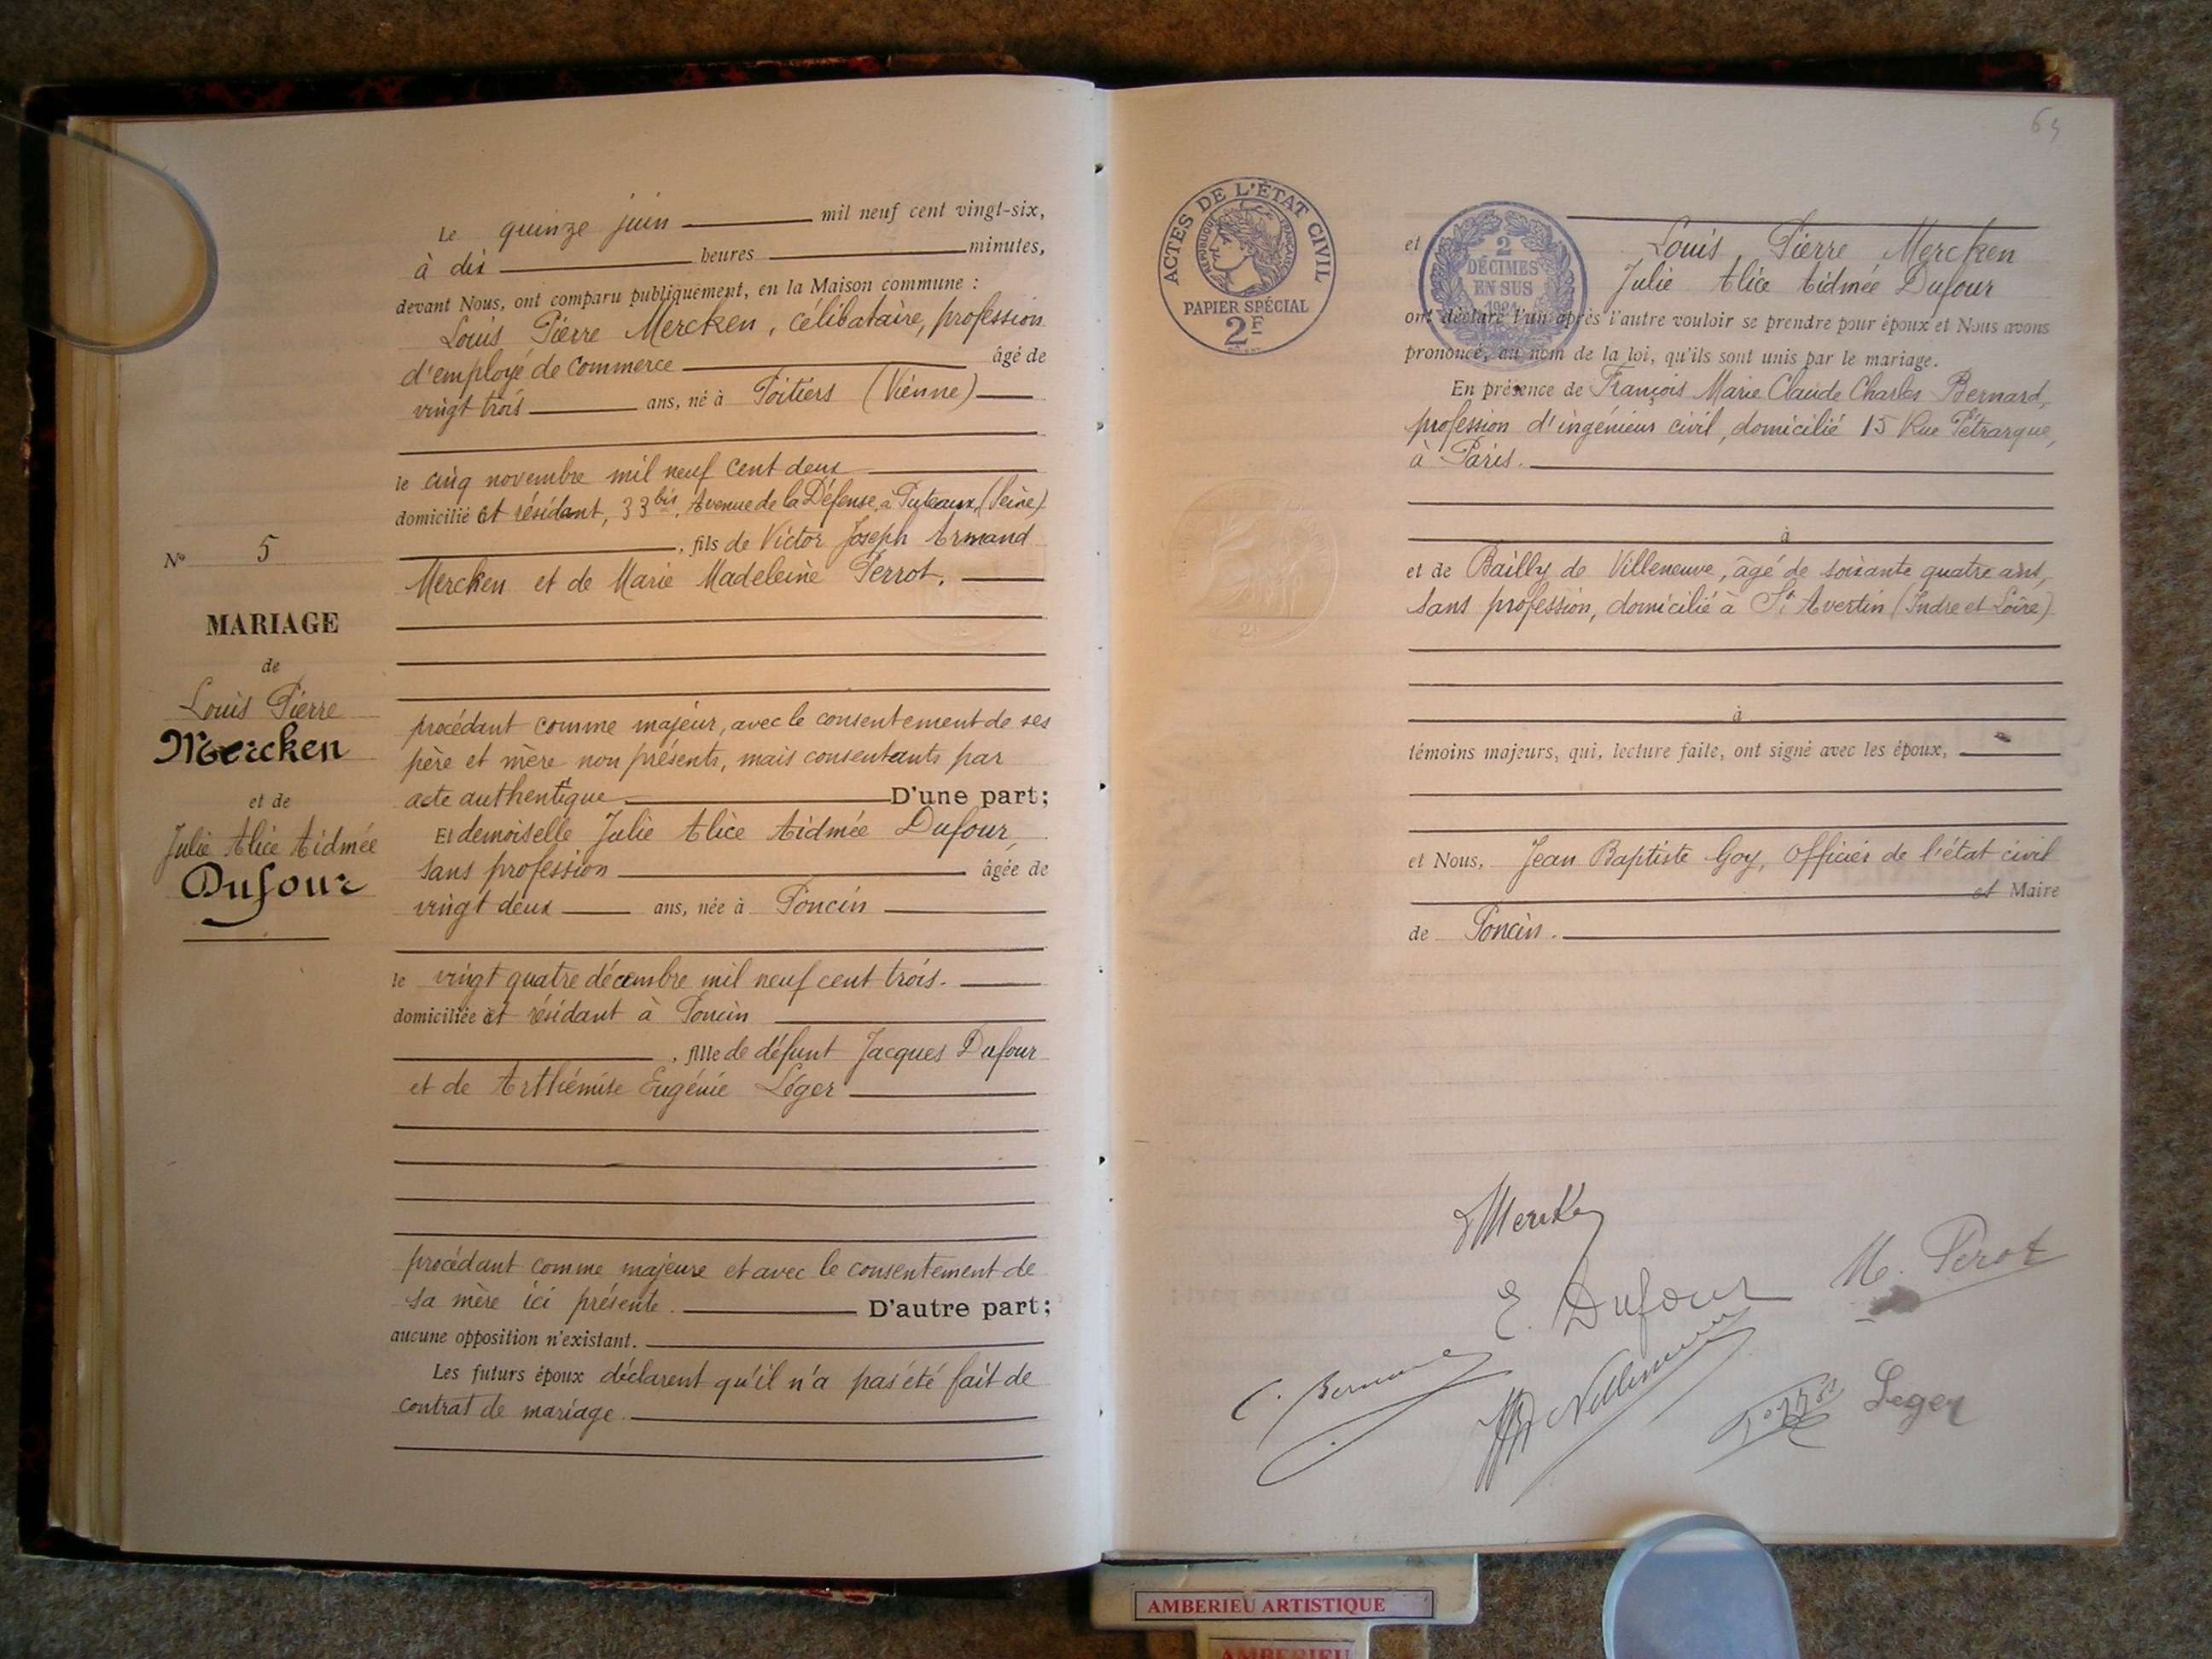 Le quinze juin mil neuf cent vingt-six,
à dix heures minutes,
devant Nous, ont comparu publiquement, en la Maison commune :
Louis Pierre Mercken, célibataire, profession
d'employé de commerce âgé de
vingt trois ans, né à Poitiers (Vienne)
le cinq novembre mil neuf cent deux
domicilié et résidant, 33 bis, Avenue de la Défense, à Puteaux, (Seine)
, fils de Victor Joseph Armand
Mercken et de Marie Madeleine Perrot.
N° 5
MARIAGE
de
Louis Pierre
Mercken
et de
Julie Alice Aidmée
Dufour
procédant comme majeur, avec le consentement de ses
père et mère non présents, mais consentants par
acte authentique D'une part;
Et demoiselle Julie Alice Aidmée Dufour,
sans profession âgée de
vingt deux ans, née à Poncin
le vingt quatre décembre mil neuf cent trois.
domiciliée et résidant à Poncin
, fille de défunt Jacques Dufour
et de Arthémise Eugénie Léger
procédant comme majeure et avec le consentement de
sa mère ici présente. D'autre part;
aucune opposition n'existant.
Les futurs époux déclarent qu'il n'a pas été fait de
contrat de mariage.
ACTES DE L'ÉTAT CIVIL
RÉPUBLIQUE FRANÇAISE
PAPIER SPÉCIAL
2F
2
DÉCIMES
EN SUS
1924
et Louis Pierre Mercken
Julie Alice Aidmée Dufour
ont déclaré l'un après l'autre vouloir se prendre pour époux et Nous avons
prononcé, au nom de la loi, qu'ils sont unis par le mariage.
En présence de François Marie Claude Charles Bernard,
profession d'ingénieur civil, domicilié 15 Rue Pétrarque,
à Paris.
à
et de Bailly de Villeneuve, âgé de soixante quatre ans,
sans profession, domicilié à St Avertin (Indre et Loire)
à
témoins majeurs, qui, lecture faite, ont signé avec les époux,
et Nous, Jean Baptiste Goy, Officier de l'état civil
et Maire
de Poncin.
Mercken
E. Dufour
M. Perot
C. Bernard
Leger
AMBERIEU ARTISTIQUE
AMBERIEU